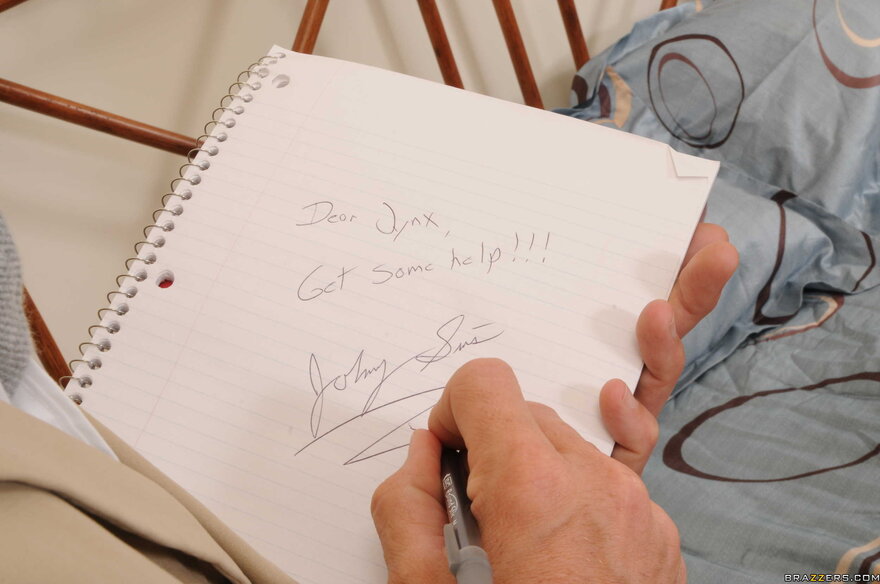 Dear Jynx,
Get some help!!!
Johny Sins
BRAZZERS.COM